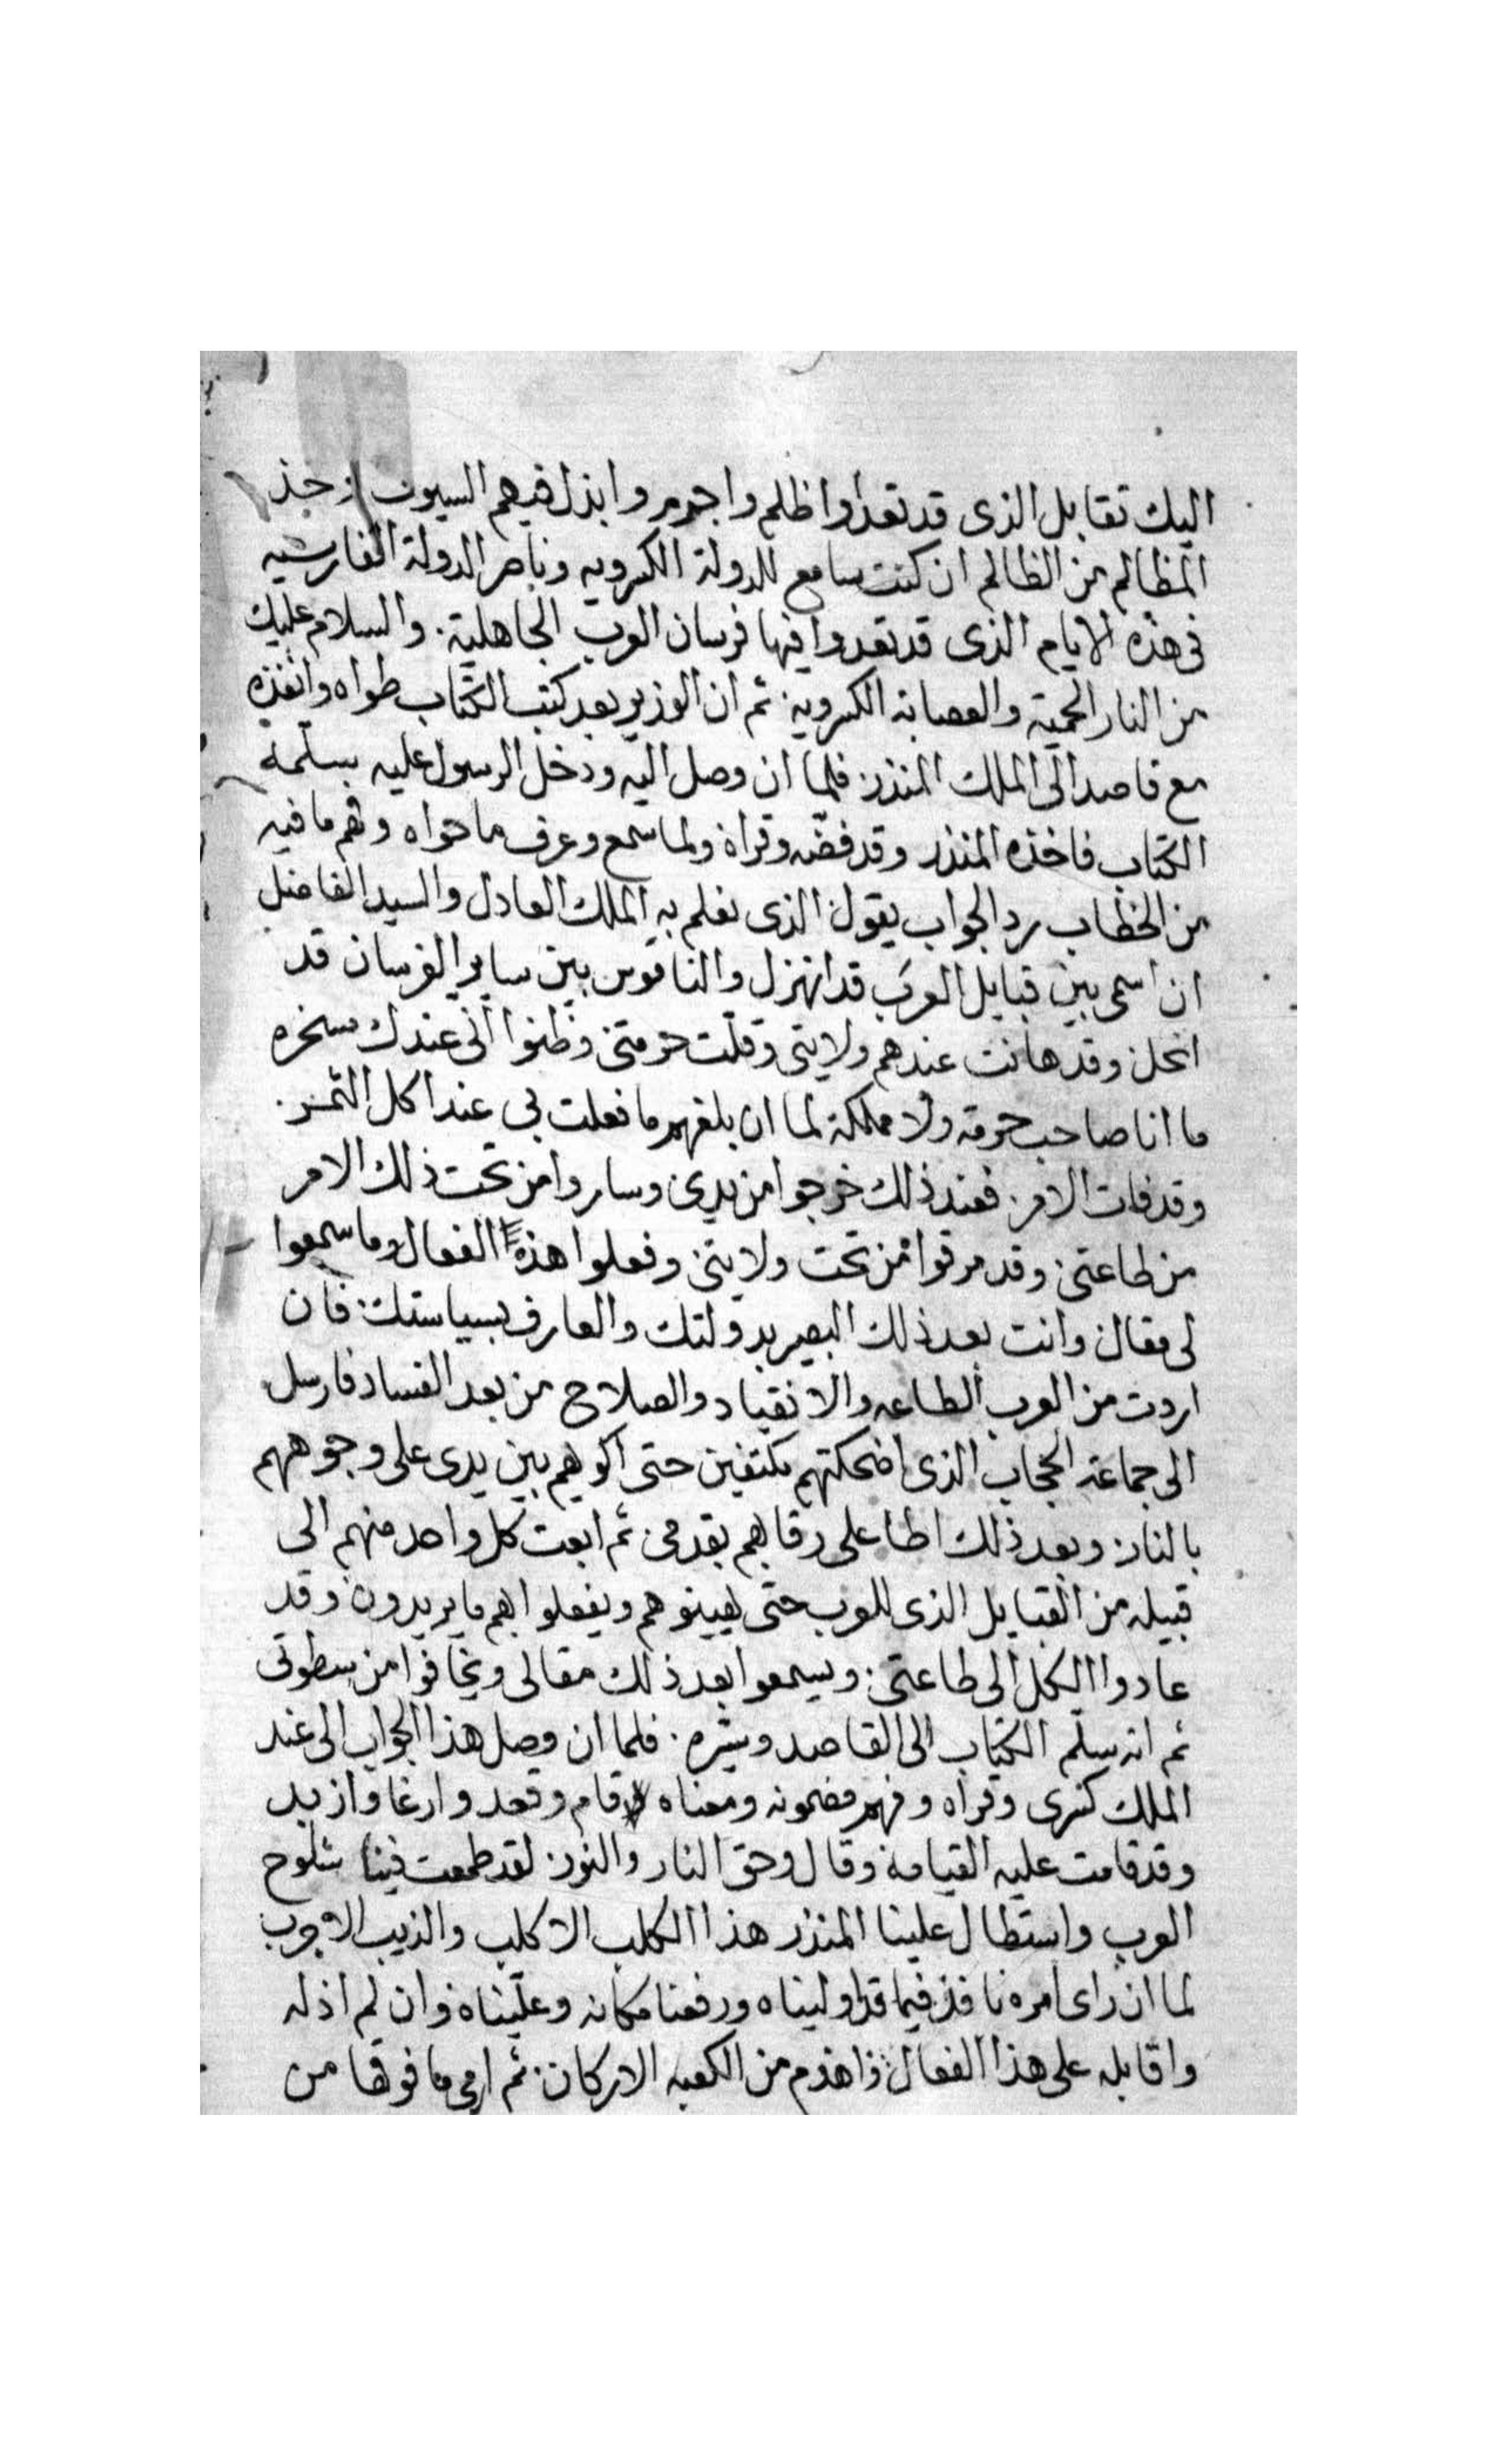 اليك تقابل الذى قد تعدا وا ظلم واجرم وابذل فيهم السيوف وخذ
المظالم من الظالم ان كنت سامع للدولة الكسرويه وناصر الدولة الفارسيه
فى هذه الايام الذى قد تعدوا فيها فرسان العرب الجاهلية. والسلام عليك
من النار الحمية والعصابة الكسروية. ثم ان الوزير بعد كتب الكتاب طواه وانفذه
مع قاصد الى الملك المنذر. فلما ان وصل اليه ودخل الرسول عليه بسلمه
الكتاب فاخذه المنذر وقد فضّه وقراة ولما سمع وعرف ما حواه وفهم ما فيه
من الخطاب رد الجواب يقول الذى نعلم به الملك العادل والسيد الفاضل
ان اسمى بين قبايل العرب قد انهزل والناموس بين ساير الفرسان قد
انحل. وقد هانت عندهم ولايتى وقلّت حرمتى وظنوا انى عندك سخره
ما انا صاحب حرمة ولا مملكة لما ان بلغهم ما فعلت بى عند اكل التمر.
وقد فات الامر. فعند ذلك خرجوا من يدى وساروا من تحت ذلك الامر
من طاعتى. وقد مرقوا من تحت ولايتى وفعلوا هذه الفعال وما سمعوا
لى مقال وانت بعد ذلك البصير بدولتك والعارف بسياستك. فان
اردت من العرب الطاعه والانقياد والصلاح من بعد الفساد فارسل
الى جماعة الحجاب الذى اضحكتهم مكتفين حتى اكويهم بين يدى على وجوههم
بالنار. وبعد ذلك اطا على رقابهم بقدمى. ثم ابعت كل واحد منهم الى
قبيله من القبايل الذى للعرب حتى يهينوهم ويفعلوا بهم ما يريدون وقد
عادوا الكل الى طاعتى. ويسمعوا بعد ذلك مقالى ويخافوا من سطوتى
ثم انه سلّم الكتاب الى القاصد وسيّره. فلما ان وصل هذا الجواب الى عند
الملك كسرى وقراه وفهم مضمونه ومعناه قام وقعد وارغا وازبد
وقد قامت عليه القيامة وقال وحق النار والنور. لقد طمعت فينا شلوح
العرب واستطال علينا المنذر هذا الكلب الاكلب والذيب الاجرب
لما ان راى امره نافذ فيما قد اوليناه ورفعنا مكانه وعلّيناه وان لم اذله
واقابله على هذا الفعال واهدم من الكعبه الاركان. ثم ارمى ما فوقها من